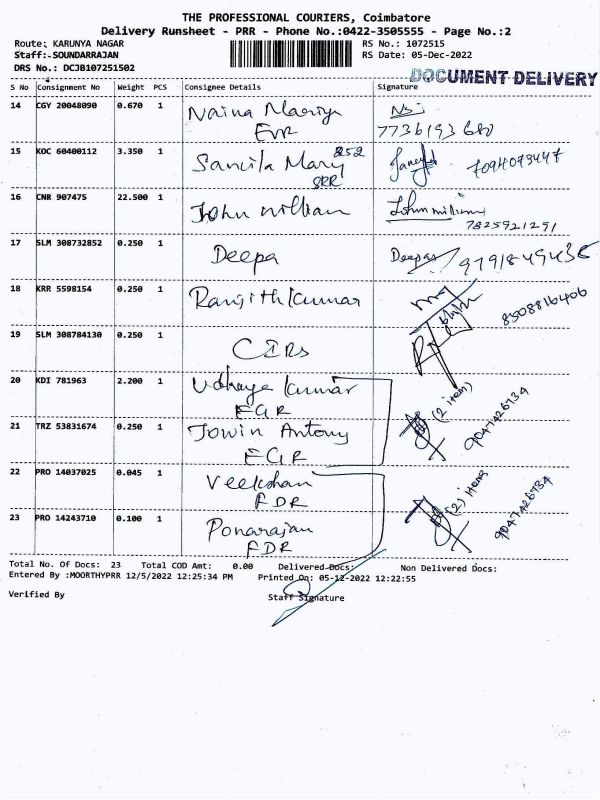 THE PROFESSIONAL COURIERS, Coimbatore
Delivery Runsheet - PRR - Phone No.:0422-3505555 - Page No.:2
Route: KARUNYA NAGAR RS No.: 1072515
Staff:-SOUNDARRAJAN RS Date: 05-Dec-2022
DRS No.: DCJB107251502
DOCUMENT DELIVERY
S No Consignment No Weight PCS Consignee Details Signature
14 CGY 20048090 0.670 1 Naina
7736193680
15 KOC 60400112 3.350 1 Mary 252 7094073447
SRR
16 CNR 907475 22.500 1 John william John william
7825921291
17 SLM 308732852 0.250 1 Deepa Deepa 9791849438
18 KRR 5598154 0.250 1 Ranjith Kumar 8508816406
19 SLM 308784130 0.250 1
20 KDI 781963 2.200 1 Udhaya Kumar (2 item)
EGR 9047426734
21 TRZ 53831674 0.250 1 Jowin Antony
EGR
22 PRO 14037025 0.045 1 Veekshan (2) items
FDR 9047426734
23 PRO 14243710 0.100 1 Ponarajan
FDR
Total No. Of Docs: 23 Total COD Amt: 0.00 Delivered Docs: Non Delivered Docs:
Entered By :MOORTHYPRR 12/5/2022 12:25:34 PM Printed On: 05-12-2022 12:22:55
Verified By Staff Signature